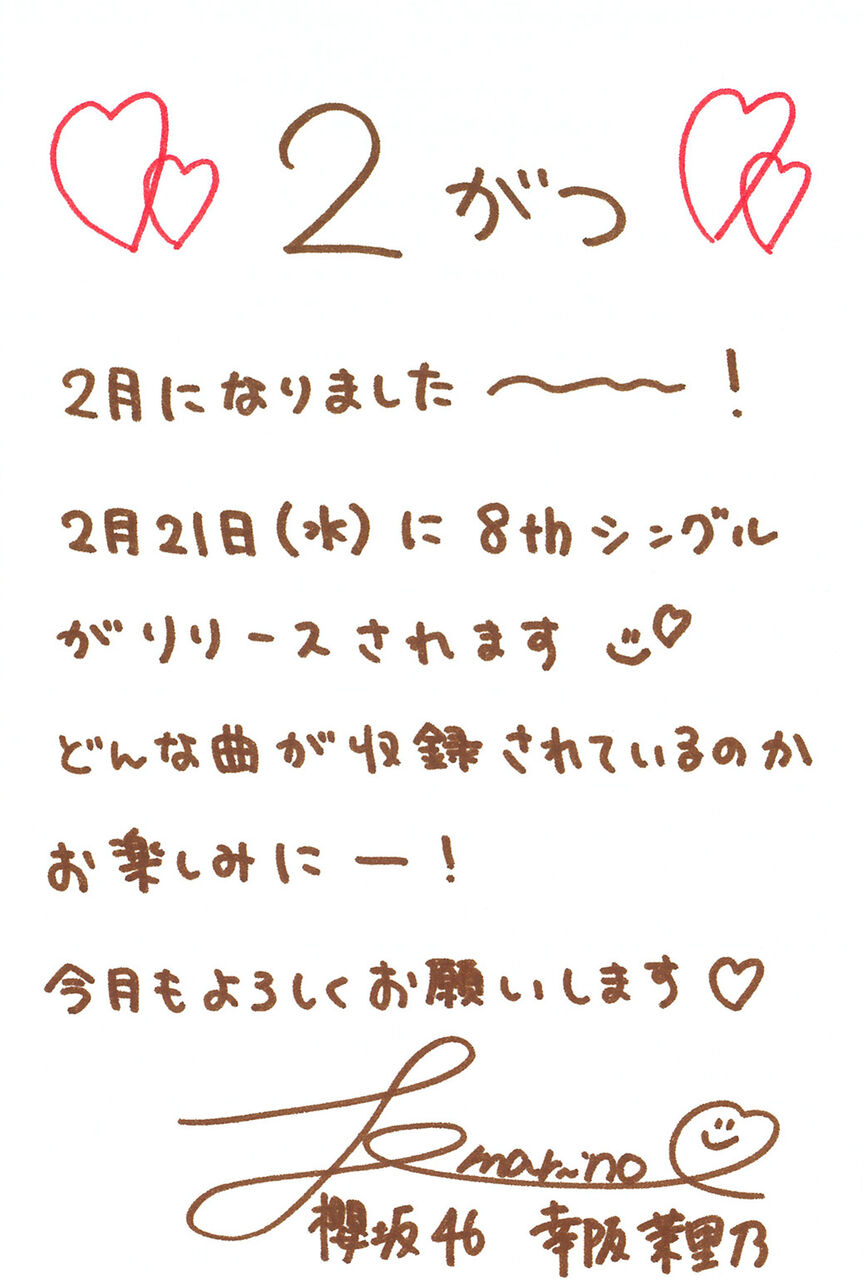 2がつ
2月になりました〜!
2月21日(水)に 8thシングル
がリリースされます
どんな曲が収録されているのか
お楽しみにー!
今月もよろしくお願いします♡
marino
櫻坂46 幸阪茉里乃